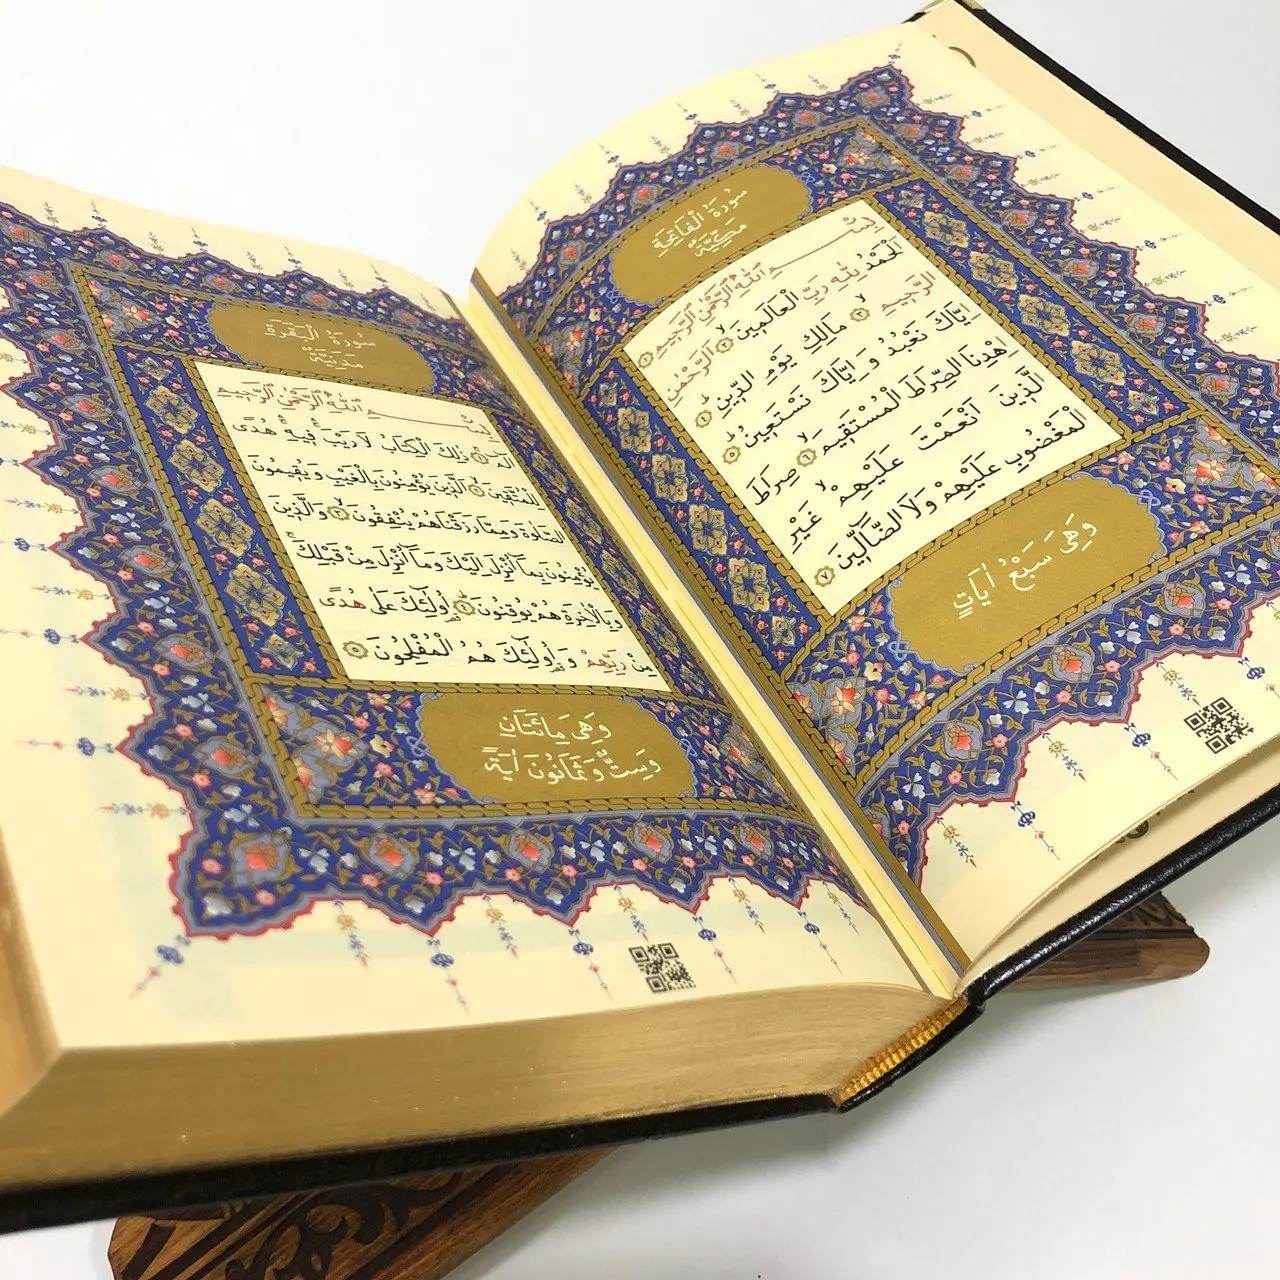 سُورَةُ الْفَاتِحَةِ
مَكِّيَّةٌ
بِسْمِ اللّٰهِ الرَّحْمٰنِ الرَّحِيمِ ١
الْحَمْدُ لِلّٰهِ رَبِّ الْعَالَمِينَ ٢ الرَّحْمٰنِ
الرَّحِيمِ ٣ مَالِكِ يَوْمِ الدِّينِ ٤
اِيَّاكَ نَعْبُدُ وَاِيَّاكَ نَسْتَعِينُ ٥
اِهْدِنَا الصِّرَاطَ الْمُسْتَقِيمَ ٦ صِرَاطَ
الَّذِينَ اَنْعَمْتَ عَلَيْهِمْ غَيْرِ
الْمَغْضُوبِ عَلَيْهِمْ وَلَا الضَّٓالِّينَ ٧
وَهِىَ سَبْعُ اٰيَاتٍ
سُورَةُ الْبَقَرَةِ
مَدَنِيَّةٌ
بِسْمِ اللّٰهِ الرَّحْمٰنِ الرَّحِيمِ
الٓمٓ ١ ذٰلِكَ الْكِتَابُ لَا رَيْبَ فِيهِ هُدًى
لِلْمُتَّقِينَ ٢ الَّذِينَ يُؤْمِنُونَ بِالْغَيْبِ وَيُقِيمُونَ
الصَّلٰوةَ وَمِمَّا رَزَقْنَاهُمْ يُنْفِقُونَ ٣ وَالَّذِينَ
يُؤْمِنُونَ بِمَٓا اُنْزِلَ اِلَيْكَ وَمَٓا اُنْزِلَ مِنْ قَبْلِكَ
وَبِالْاٰخِرَةِ هُمْ يُوقِنُونَ ٤ اُولٰٓئِكَ عَلٰى هُدًى
مِنْ رَبِّهِمْ وَاُولٰٓئِكَ هُمُ الْمُفْلِحُونَ ٥
وَهِىَ مِائَتَانِ
وَسِتٌّ وَثَمَانُونَ اٰيَةً